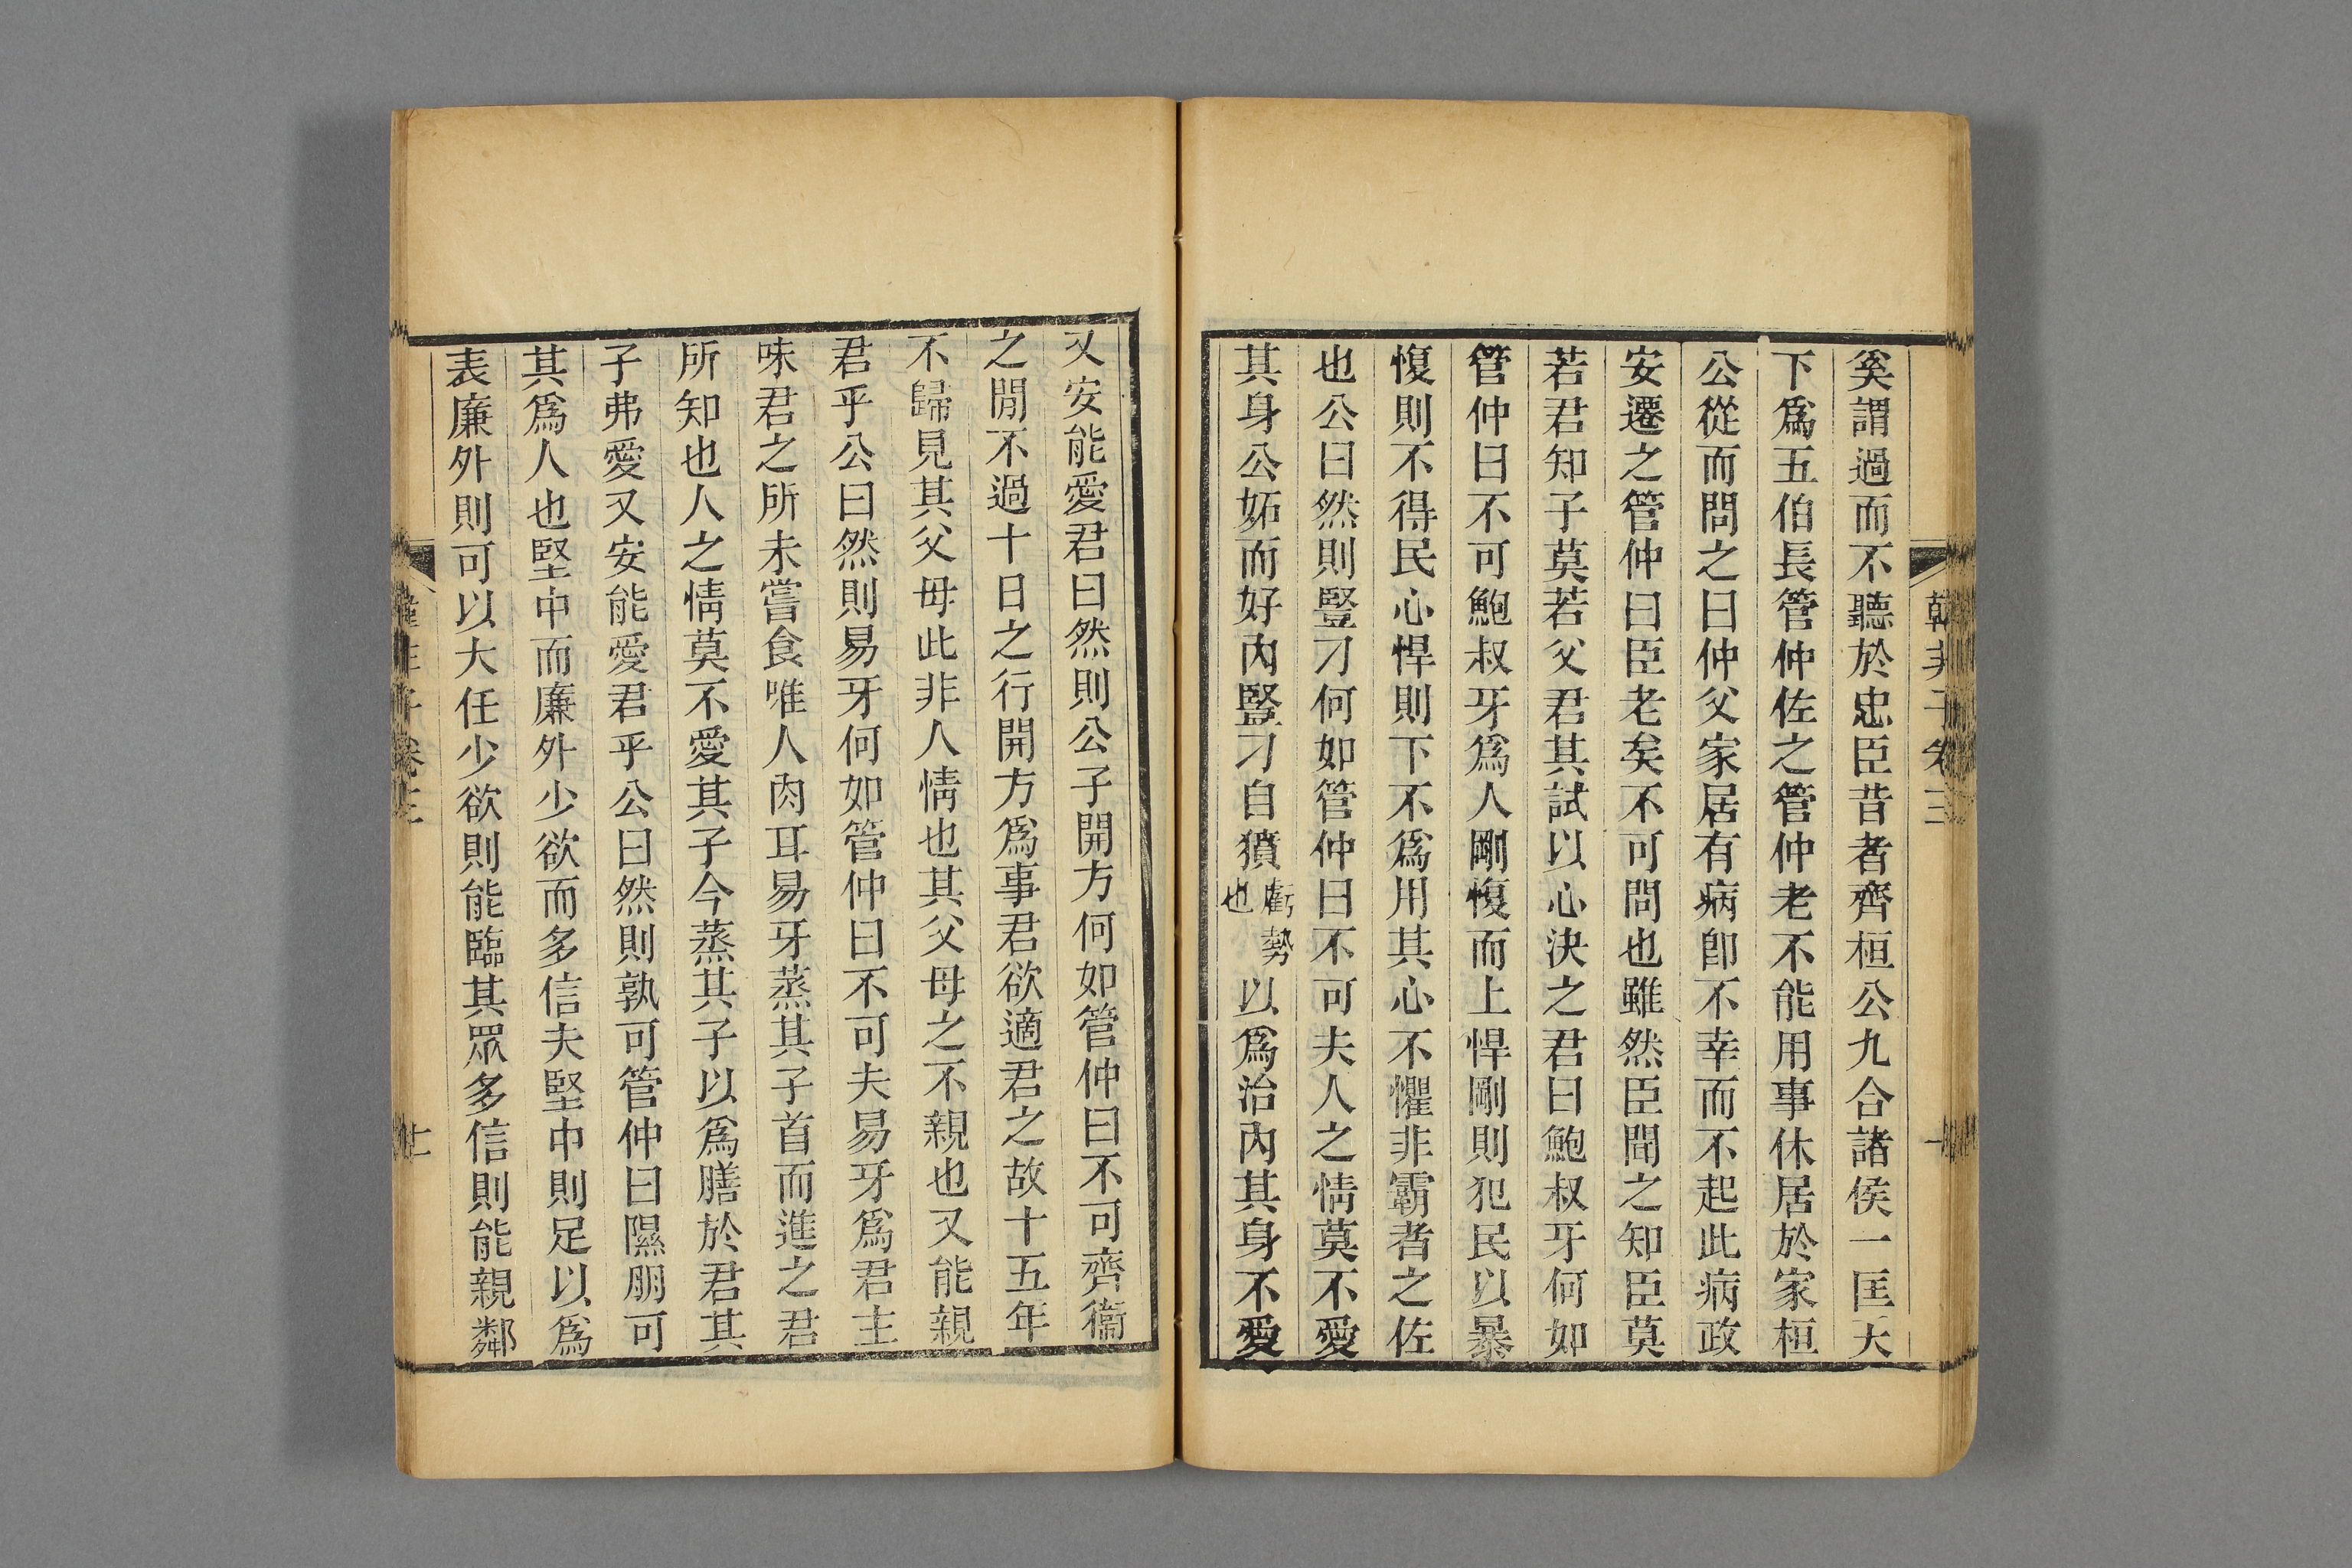 韓非子卷三
奚謂過而不聽於忠臣昔者齊桓公九合諸侯一匡天
下爲五伯長管仲佐之管仲老不能用事休居於家桓
公從而問之曰仲父家居有病卽不幸而不起此病政
安遷之管仲曰臣老矣不可問也雖然臣聞之知臣莫
若君知子莫若父君其試以心決之君曰鮑叔牙何如
管仲曰不可鮑叔牙爲人剛愎而上悍剛則犯民以暴
愎則不得民心悍則下不爲用其心不懼非霸者之佐
也公曰然則豎刁何如管仲曰不可夫人之情莫不愛
其身公妬而好內豎刁自獖虧勢也以爲治內其身不愛
又安能愛君曰然則公子開方何如管仲曰不可齊衞
之閒不過十日之行開方爲事君欲適君之故十五年
不歸見其父母此非人情也其父母之不親也又能親
君乎公曰然則易牙何如管仲曰不可夫易牙爲君主
味君之所未嘗食唯人肉耳易牙蒸其子首而進之君
所知也人之情莫不愛其子今蒸其子以爲膳於君其
子弗愛又安能愛君乎公曰然則孰可管仲曰隰朋可
其爲人也堅中而廉外少欲而多信夫堅中則足以爲
表廉外則可以大任少欲則能臨其眾多信則能親鄰